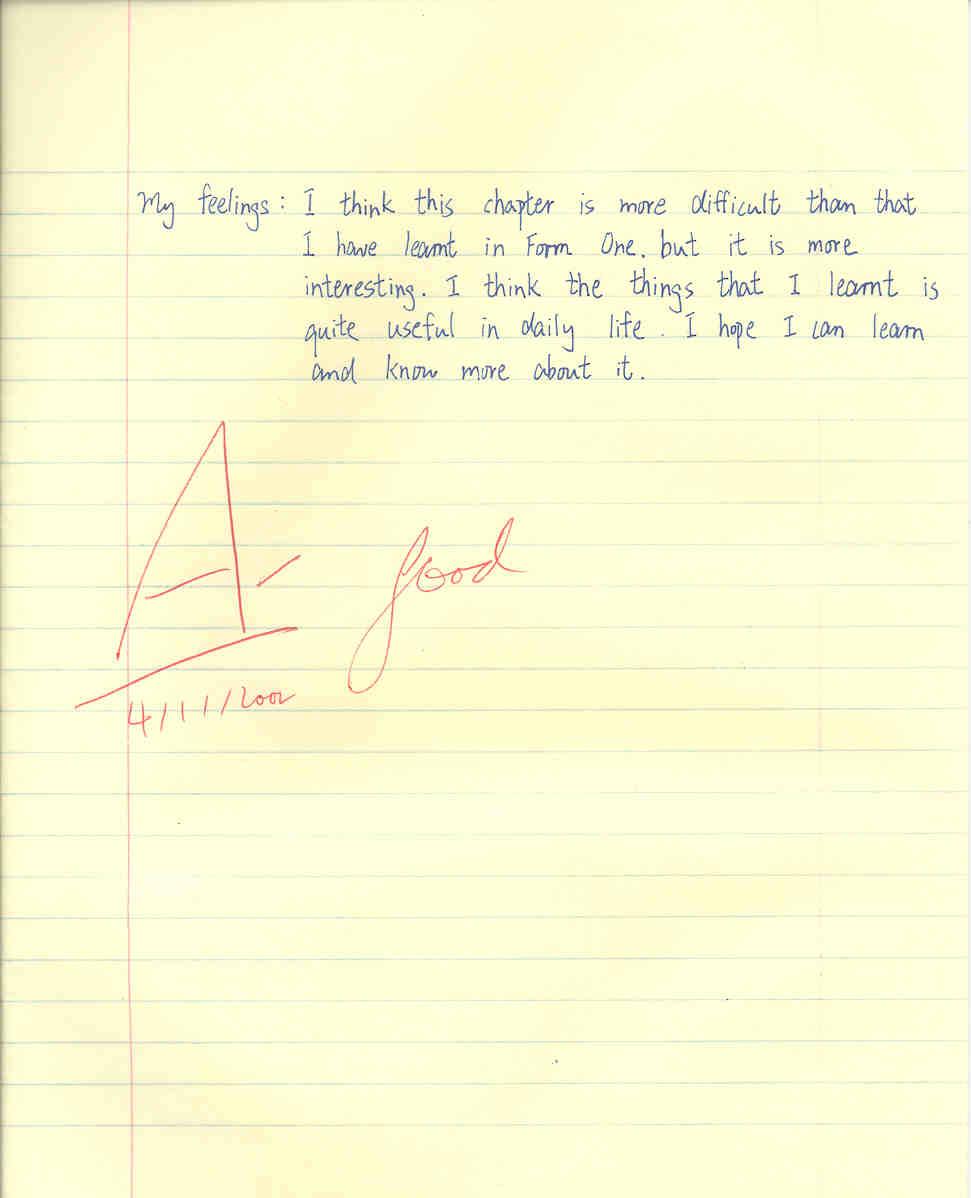 My feelings: I think this chapter is more difficult than that
I have learnt in Form One. but it is more
interesting. I think the things that I learnt is
quite useful in daily life. I hope I can learn
and know more about it.
A-
good
4/11/2002